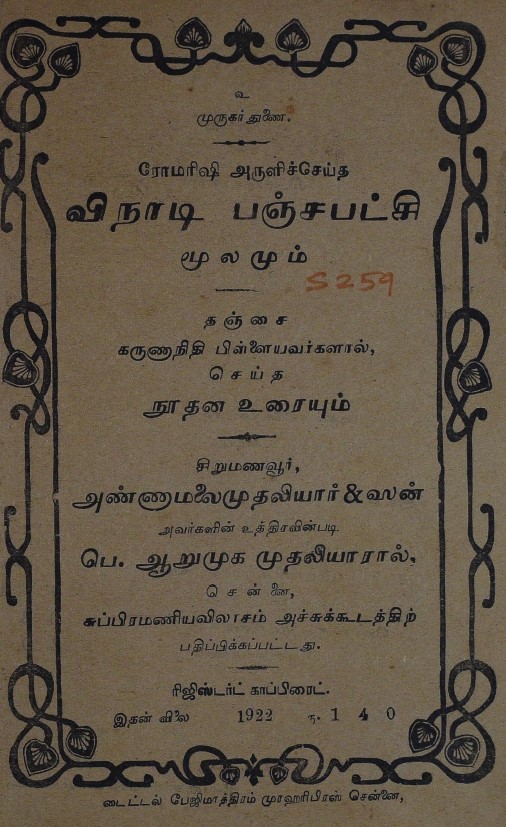 உ
முருகர் துணை.
ரோமரிஷி அருளிச்செய்த
விநாடி பஞ்சபட்சி
மூலமும்
S 259
தஞ்சை
கருணாநிதி பிள்ளையவர்களால்,
செய்த
நூதன உரையும்
சிறுமணவூர்,
அண்ணாமலைமுதலியார் & ஸன்
அவர்களின் உத்திரவின்படி
பெ. ஆறுமுக முதலியாரால்,
சென்னை,
சுப்பிரமணியவிலாசம் அச்சுக்கூடத்திற்
பதிப்பிக்கப்பட்டது.
ரிஜிஸ்டர்ட் காப்பிரைட்.
இதன் விலை 1922 ரூ. 1 4 0
டைட்டல் பேஜிமாத்திரம் முரஹரிபிரஸ் சென்னை,